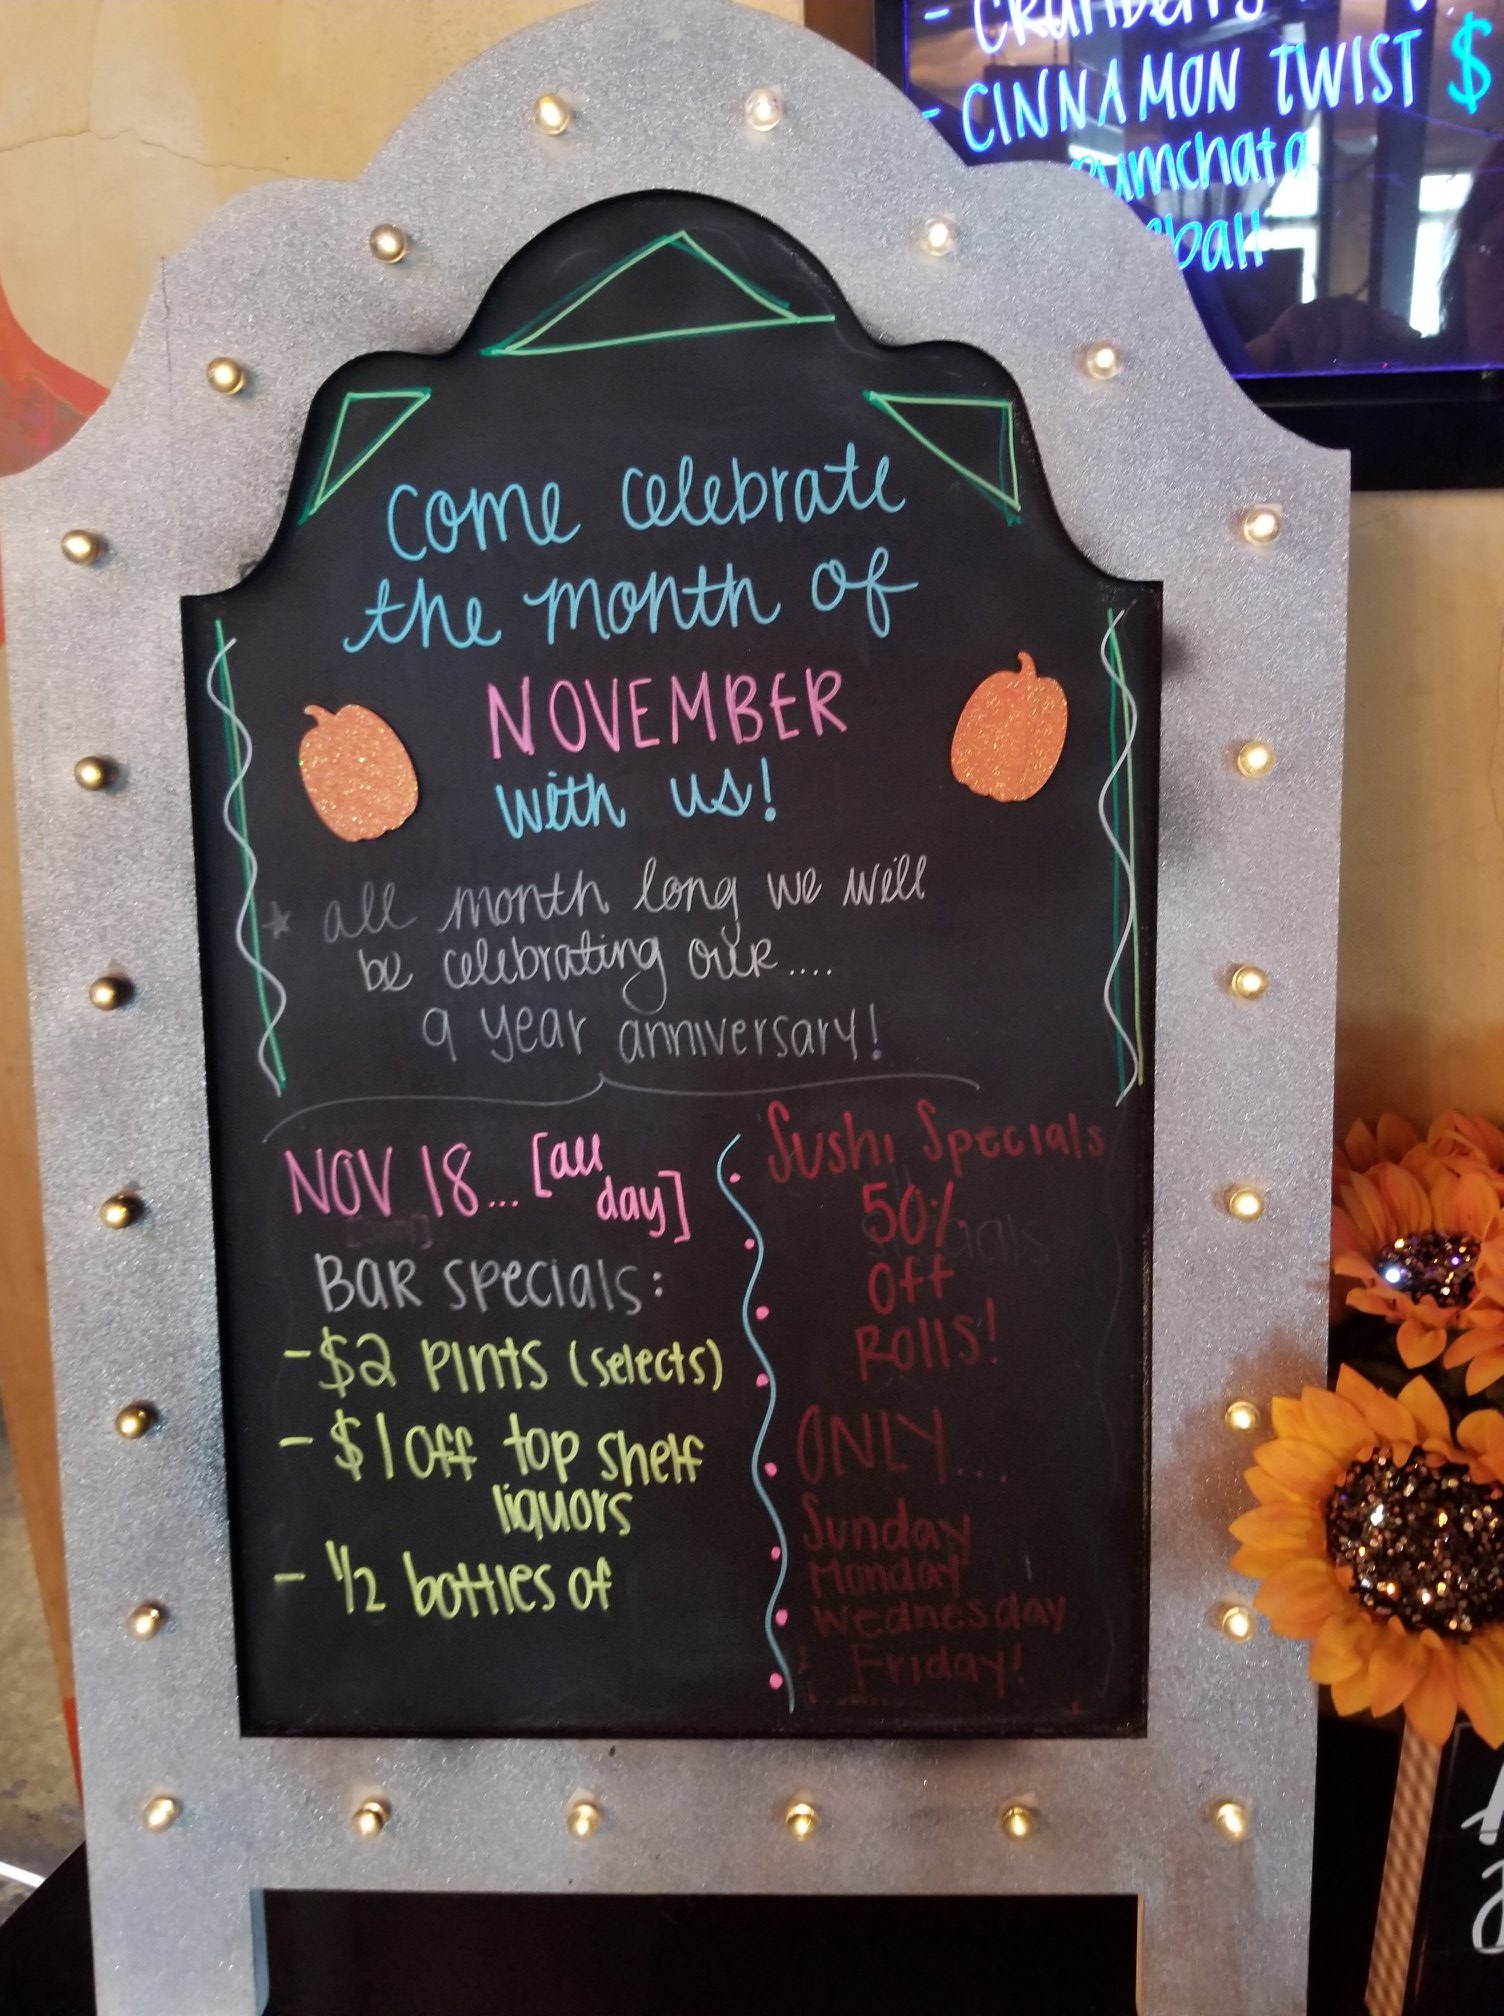 - CINNAMON TWIST $
rumchata
come celebrate
the month of
NOVEMBER
with us!
all month long we will
be celebrating our....
9 year anniversary!
NOV 18... [all
day]
BAR specials:
- $2 pints (selects)
- $1 off top shelf
liquors
- 1/2 bottles of
Sushi Specials
50%
Off
ROllS!
ONLY...
Sunday
Monday
Wednesday
Friday!